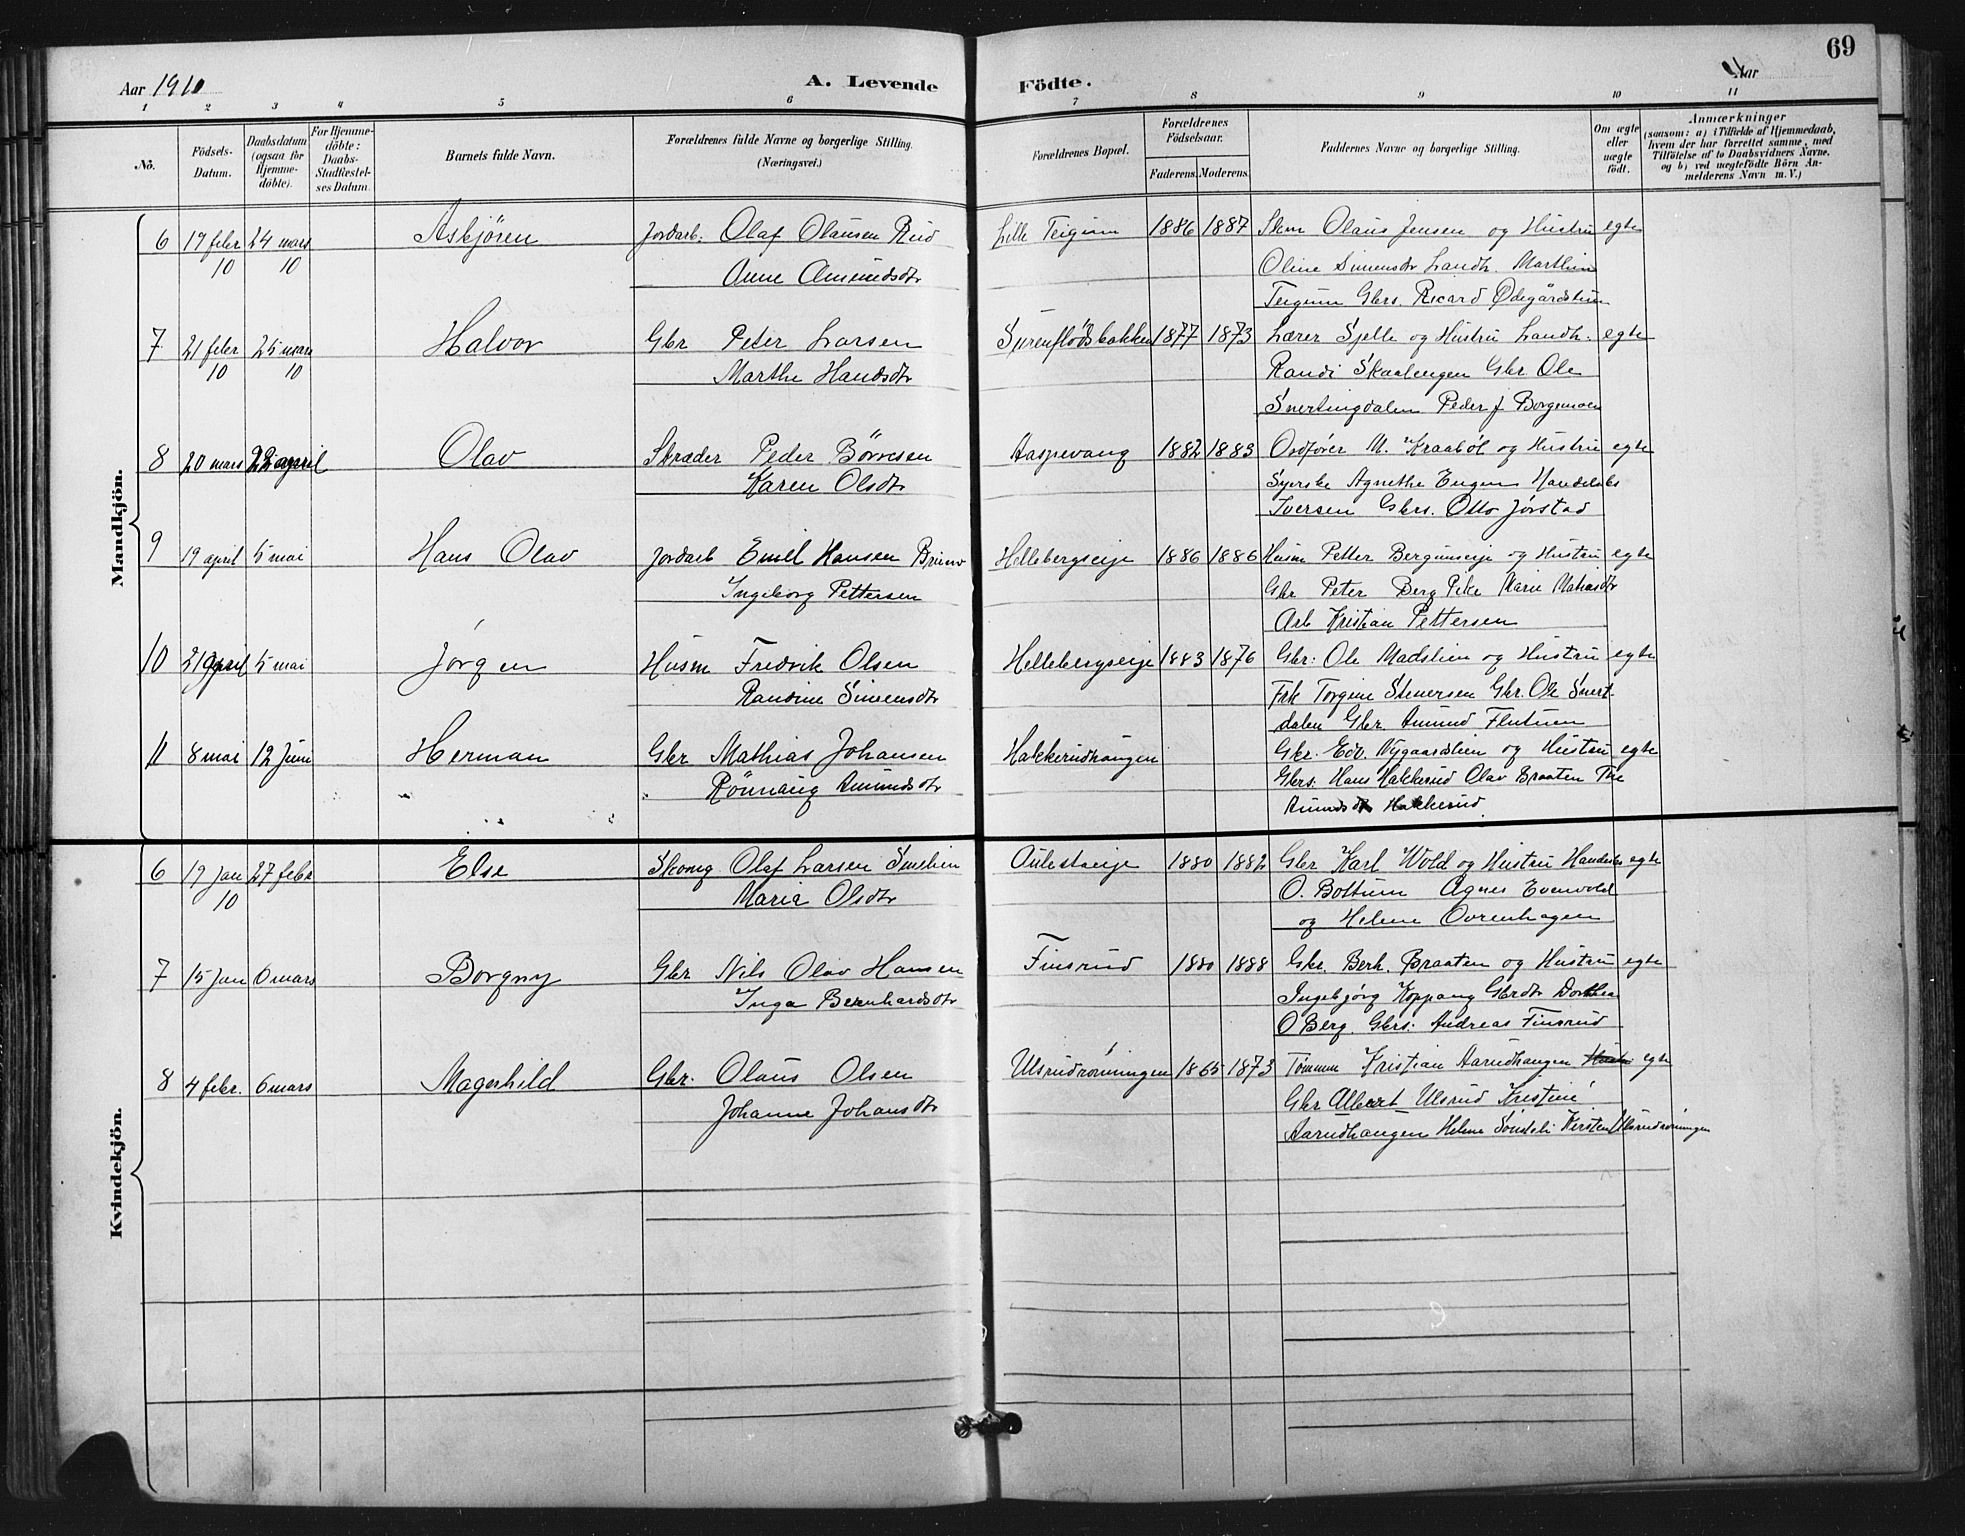 69
Aar 1910
A. Levende Födte.
Aar
1 2 3 4 5 6 7 8 9 10 11
No.
Födsels-Datum.
Daabsdatum (ogsaa for Hjemme-döbte).
For Hjemme-döbte: Daabs-Stadfæstel-ses Datum.
Barnets fulde Navn.
Forældrenes fulde Navne og borgerlige Stilling. (Næringsvei.)
Forældrenes Bopæl.
Forældrenes Födselsaar.
Faderens. Moderens.
Faddernes Navne og borgerlige Stilling.
Om ægte eller uægte födt.
Anmærkninger
(saasom: a) i Tilfælde af Hjemmedaab, hvem der har forrettet samme, med Tilföielse af to Daabsvidners Navne, og b) ved uægtefödte Börn An-melderens Navn m. V.)
Mandkjön.
6 17 febr 24 mars Askjören Jordarb: Olaf Olausen Rud Lille Teigum 1886 1887 Skm Olaus Jensen og Hustru egte
10 10 Anne Amundsdtr Oline Simensdtr Landh. Marthin
Teigum Gbrs. Ricard Ødegårdstuen
7 21 febr 25 mars Halvor Gbr Peter Larsen 1877 1873 Lærer Sjelle og Hustru Landh. egte
10 10 Marthe Hansdtr Randi Skaalengen Gbr. Ole
Snertingdalen Peder J Borgemoen
8 20 mars 22 april Olav Skræder Peder Börresen Aaspevang 1882 1883 Ordfører M. Kraabøl og Hustru egte
Karen Olsdtr Syerske Agnethe Engen Handelsbs
Iversen Gbrs. Otto Jørstad
9 19 april 5 mai Hans Olav Jordarb Emil Hansen Hellebergseije 1886 1886 Husm Petter Bergumseije og Hustru egte
Ingeborg Pettersen Gbr Peter Berg Pike Marie
Arb Kristian Pettersen
10 21 april 5 mai Jørgen Husm Fredrik Olsen Hellebergseije 1883 1876 Gbr: Ole Madslien og Hustru egte
Randine Simensdtr Frk Torgine Stenersen Gbr. Ole Snert-
dalen Gbr Amund Flutuen
11 8 mai 12 Juni Herman Gbr Mathias Johansen Hakkerudhaugen Gbr. Edv. Nygaardslien og Hustru egte
Rönnaug Amundsdtr Gbrs. Hans Hakkerud Olav Braaten
Amundsdtr Hakkerud
Kvindekjön.
6 19 Jan 27 febr Else Olaf Larsen Aulestadeije 1880 1882 Gbr Karl Wold og Hustru Handelsbs egte
10 Maria Olsdtr O. Bottum Agnes Evenvold
og Helene Ovrenhagen
7 15 Jan 6 mars Borgny Gbr Nils Olav Hansen Finsrud 1880 1888 Gbr. Berh. Braaten og Hustru egte
Inga Bernhardsdtr Ingebjørg Koppang Gbrdtr Dorthea
O Berg. Gbrs. Andreas Finsrud
8 4 febr. 6 mars Magnhild Gbr. Olaus Olsen Ulsrudrønningen 1865 1873 Tømmm Kristian Aarudhaugen egte
Johanne Johansdtr Gbr Albert Ulsrud Kristine
Aarudhaugen Helene Kirsten Ulsrudrönningen